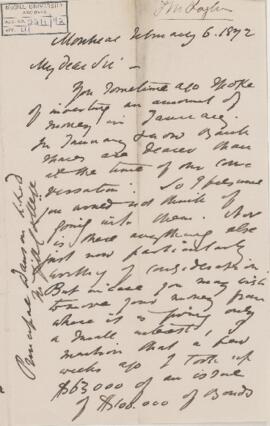 McGILL UNIVERSITY
ARCHIVES
ACC.
REF.
Montreal February 6. 1872
My Dear Sir —
You sometime ago spoke
of investing an amount of
money in January.
In January now Bank
shares are dearer than
at the time of our con-
versation. So I presume
you would not think of
going into them. Nor
is there anything else
just now particularly
worthy of consideration.
But in case you may wish
to move your money from
where it is giving only
a small interest, I
mention that a few
weeks ago I took up
$63,000 of an issue
of $100.000 of Bonds
Principal Dawson
McGill College